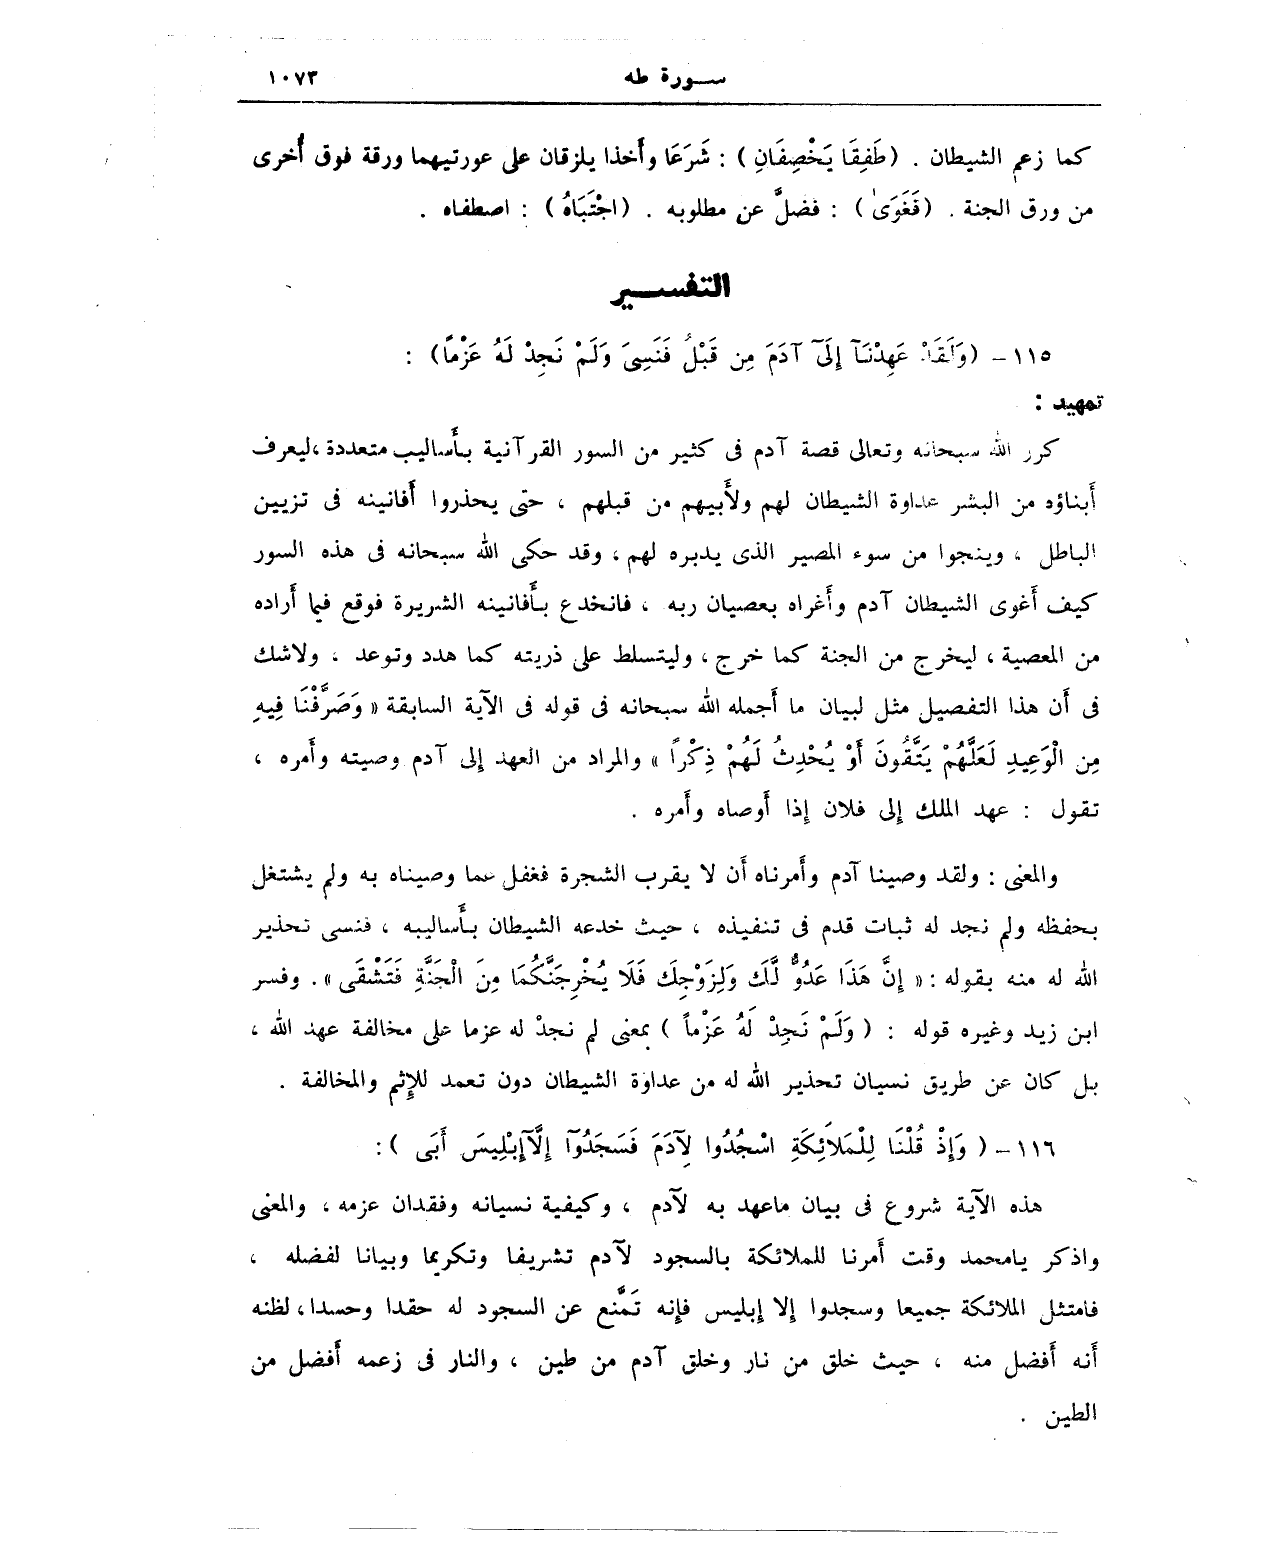 سورة طه ١٠٧٣
كما زعم الشيطان . (طَفِقَا يَخْصِفَانِ) : شَرَعَا وأَخذا يلزقان على عورتيهما ورقة فوق أُخرى
من ورق الجنة . (فَغَوَىٰ) : فضلَّ عن مطلوبه . (اجْتَبَاهُ) : اصطفاه .
التفسير
١١٥ - (وَلَقَدْ عَهِدْنَآ إِلَىٓ آدَمَ مِن قَبْلُ فَنَسِىَ وَلَمْ نَجِدْ لَهُ عَزْمًا) :
تمهيد :
كرر الله سبحانه وتعالى قصة آدم فى كثير من السور القرآنية بأَساليب متعددة ، ليعرف
أَبناؤه من البشر عداوة الشيطان لهم ولأَبيهم من قبلهم ، حتى يحذروا أَفانينه فى تزيين
الباطل ، وينجوا من سوء المصير الذى يدبره لهم ، وقد حكى الله سبحانه فى هذه السور
كيف أَغوى الشيطان آدم وأَغراه بعصيان ربه ، فانخدع بأَفانينه الشريرة فوقع فيما أَراده
من المعصية ، ليخرج من الجنة كما خرج ، وليتسلط على ذريته كما هدد وتوعد ، ولاشك
فى أَن هذا التفصيل مثل لبيان ما أَجمله الله سبحانه فى قوله فى الآية السابقة « وَصَرَّفْنَا فِيهِ
مِن الْوَعِيدِ لَعَلَّهُمْ يَتَّقُونَ أَوْ يُحْدِثُ لَهُمْ ذِكْرًا » والمراد من العهد إلى آدم وصيته وأَمره ،
تقول : عهد الملك إلى فلان إذا أَوصاه وأَمره .
والمعنى : ولقد وصينا آدم وأَمرناه أَن لا يقرب الشجرة فغفل عما وصيناه به ولم يشتغل
بحفظه ولم نجد له ثبات قدم فى تنفيذه ، حيث خدعه الشيطان بأَساليبه ، فنسى تحذير
الله له منه بقوله : « إِنَّ هَذَا عَدُوٌّ لَّكَ وَلِزَوْجِكَ فَلَا يُخْرِجَنَّكُمَا مِنَ الْجَنَّةِ فَتَشْقَى » . وفسر
ابن زيد وغيره قوله : ( وَلَمْ نَجِدْ لَهُ عَزْمًا ) بمعنى لم نجدْ له عزما على مخالفة عهد الله ،
بل كان عن طريق نسيان تحذير الله له من عداوة الشيطان دون تعمد للإِثم والمخالفة .
١١٦ - ( وَإِذْ قُلْنَا لِلْمَلَائِكَةِ اسْجُدُوا لِآدَمَ فَسَجَدُوٓا إِلَّآ إِبْلِيسَ أَبَى ) :
هذه الآية شروع فى بيان ماعهد به لآدم ، وكيفية نسيانه وفقدان عزمه ، والمعنى
واذكر يامحمد وقت أَمرنا للملائكة بالسجود لآدم تشريفا وتكريما وبيانا لفضله ،
فامتثل الملائكة جميعا وسجدوا إلا إبليس فإنه تَمَنَّع عن السجود له حقدا وحسدا ، لظنه
أَنه أَفضل منه ، حيث خلق من نار وخلق آدم من طين ، والنار فى زعمه أَفضل من
الطين .